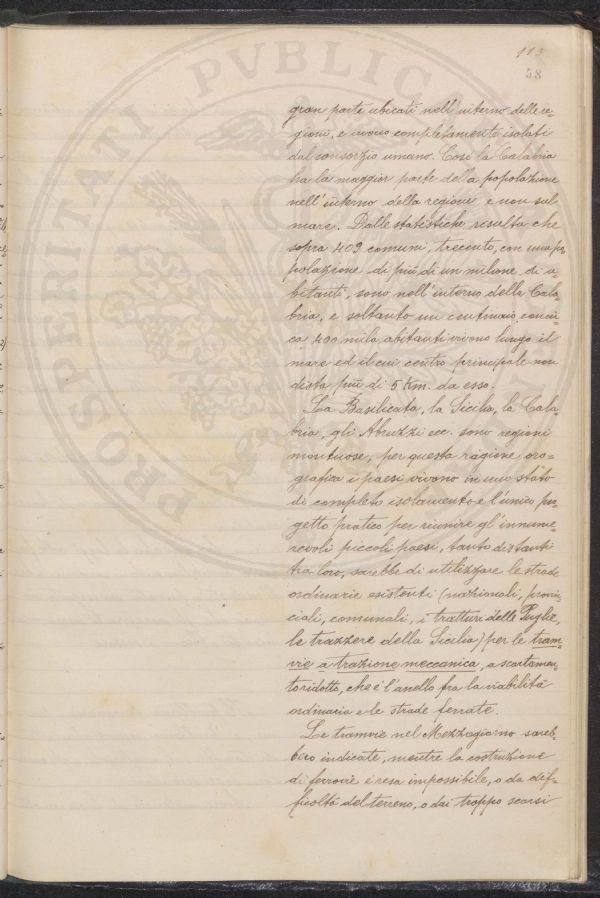 113
58
PROSPERITATI PVBLICAE
gran parte ubicati nell'interno delle re=
gioni, e vivono completamente isolati
dal consorzio umano. Così la Calabria
ha la maggior parte della popolazione
nell'interno della regione e non sul
mare. Dalle statistiche risulta che
sopra 409 comuni, trecento, con una po=
polazione di più di un milione di a=
bitanti, sono nell'interno della Cala=
bria, e soltanto un centinaio con cir=
ca 400 mila abitanti vivono lungo il
mare ed il cui centro principale non
dista più di 5 Km. da esso.
La Basilicata, la Sicilia, la Cala=
bria, gli Abruzzi ecc. sono regioni
montuose, per questa ragione oro=
grafica i paesi vivono in uno stato
di completo isolamento e l'unico pro=
getto pratico per riunire gl'innume=
revoli piccoli paesi, tanto distanti
tra loro, sarebbe di utilizzare le strade
ordinarie esistenti (nazionali, provin=
ciali, comunali, i tratturi delle Puglie,
le trazzere della Sicilia) per le tram=
vie a trazione meccanica, a scartamen=
to ridotto, che è l'anello fra la viabilità
ordinaria e le strade ferrate.
Le tramvie nel Mezzogiorno sareb=
bero indicate, mentre la costruzione
di ferrovie è resa impossibile, o da dif=
ficoltà del terreno, o dai troppo scarsi